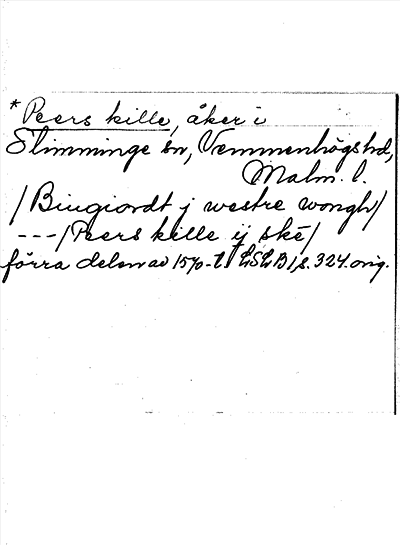 * Peers kille, åker i
Slimminge sn, Vemmenhögs hd,
Malm. l.
/Biugiordt j westre wongh/
---/Peers kille ij ske/
förra delen av 1570-t. LSLB1 s. 324. orig.